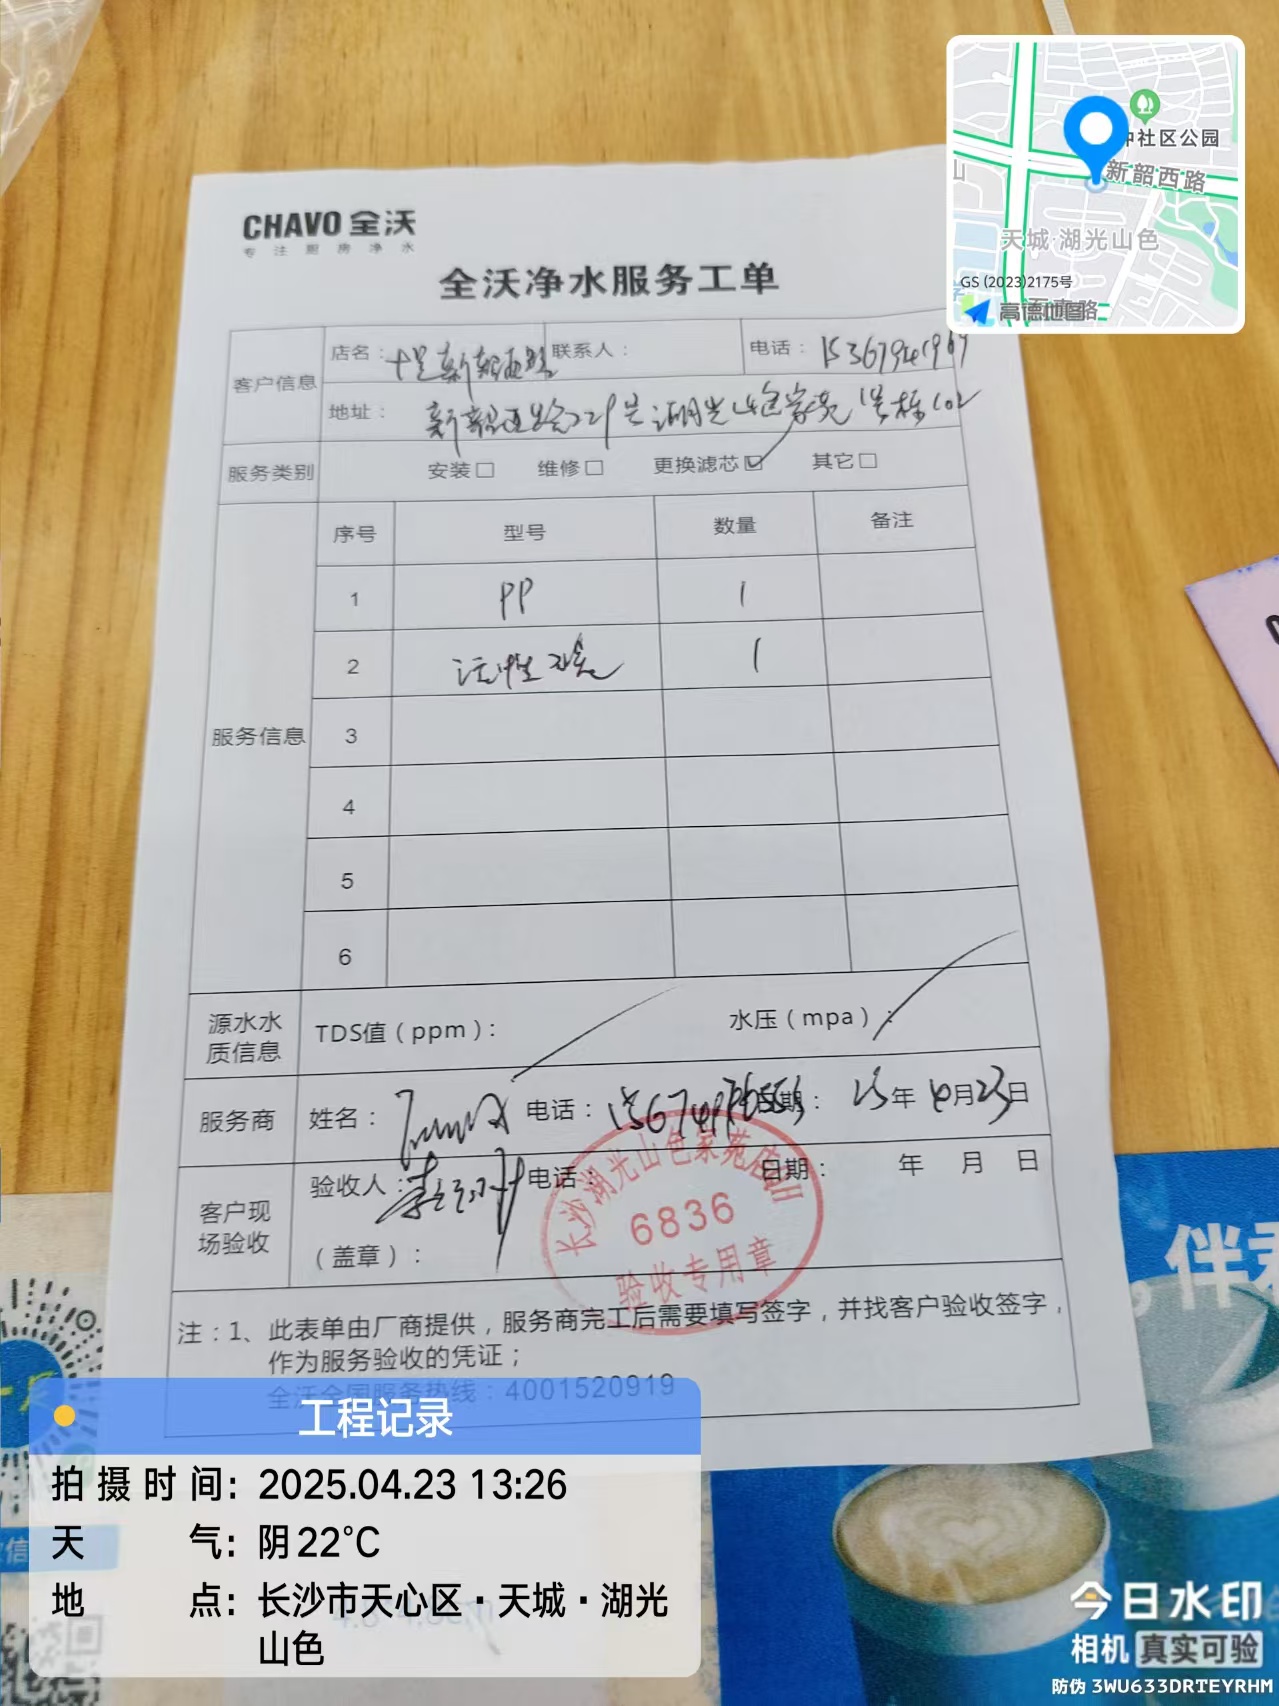 CHAVO 全沃
专注厨房净水
全沃净水服务工单
客户信息
店名：
联系人：
电话：
地址：新韶西路221号湖光山色家苑1号栋102
服务类别
安装□ 维修□ 更换滤芯☑ 其它□
服务信息
序号 型号 数量 备注
1 PP 1
2 活性炭 1
3
4
5
6
源水水质信息
TDS值（ppm）：
水压（mpa）：
服务商
姓名：
电话：
日期：25年4月23日
客户现场验收
验收人：
电话：
日期： 年 月 日
（盖章）：
长沙湖光山色家苑店
6836
验收专用章
注：1、此表单由厂商提供，服务商完工后需要填写签字，并找客户验收签字，
作为服务验收的凭证；
全沃全国服务热线：4001520919
中社区公园
新韶西路
山
天城·湖光山色
GS (2023)2175号
高德地图
伴君
工程记录
拍摄时间：2025.04.23 13:26
天气：阴22℃
地点：长沙市天心区·天城·湖光
山色
今日水印
相机 真实可验
防伪 3WU633DRTEYRHM